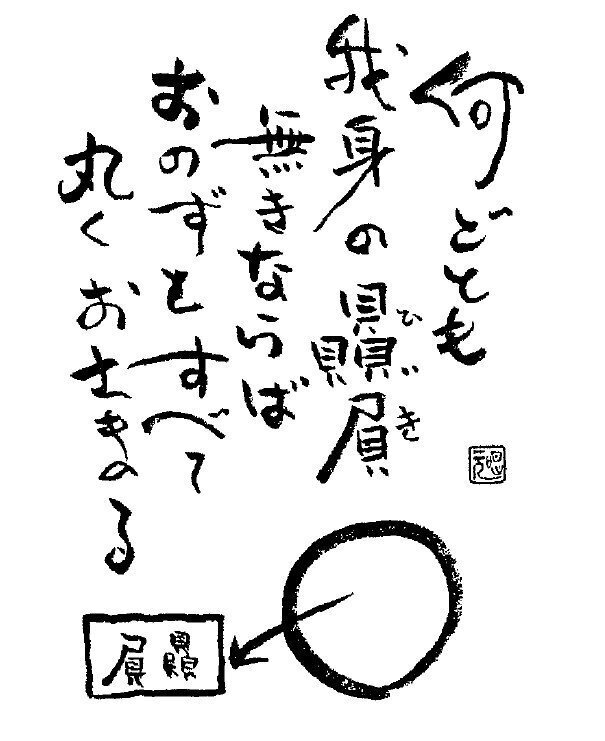 何ごとも
我身の贔屓
ひいき
無きならば
おのずとすべて
丸くおさまる
贔屓